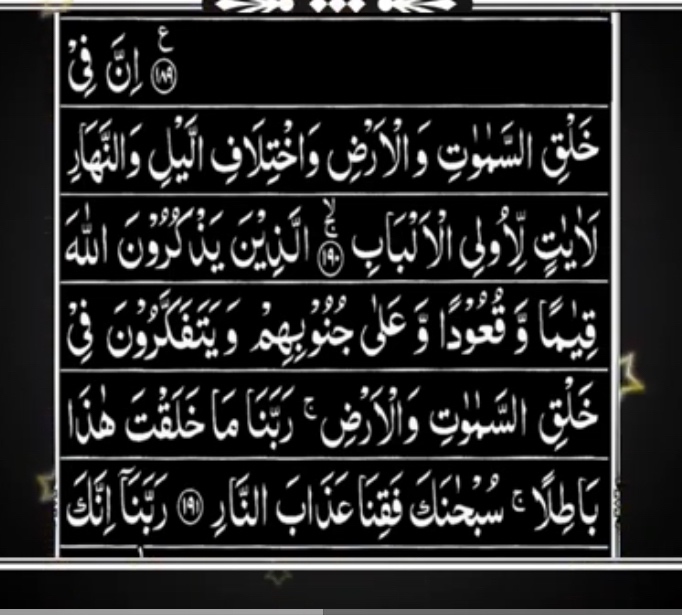 ع
﴿١٨٩﴾ اِنَّ فِیْ
خَلْقِ السَّمٰوٰتِ وَ الْاَرْضِ وَاخْتِلَافِ الَّیْلِ وَالنَّهَارِ
لَاٰیٰتٍ لِّاُولِی الْاَلْبَابِ ﴿١٩٠﴾ۚۙ الَّذِیْنَ یَذْكُرُوْنَ اللّٰهَ
قِیٰمًا وَّ قُعُوْدًا وَّ عَلٰی جُنُوْبِهِمْ وَ یَتَفَكَّرُوْنَ فِیْ
خَلْقِ السَّمٰوٰتِ وَالْاَرْضِ ۚ رَبَّنَا مَا خَلَقْتَ هٰذَا
بَاطِلًا ۚ سُبْحٰنَكَ فَقِنَا عَذَابَ النَّارِ ﴿١٩١﴾ رَبَّنَاۤ اِنَّكَ